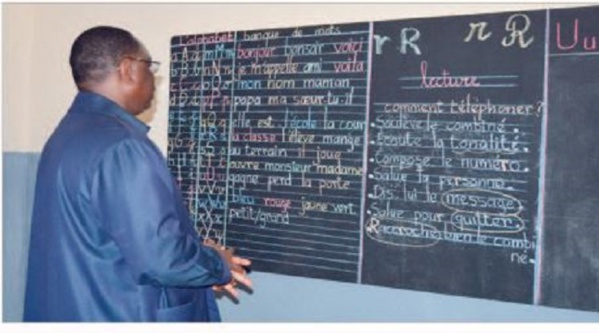 L'alphabet banque de mots
bonjour bonsoir voici
je m'appelle ami voilà
mon nom maman
papa ma sœur tu il
elle est l'école la cour
la classe l'élève mange
au terrain il joue
ouvre monsieur madame
gagne perd la porte
bleu rouge jaune vert
petit/grand
r R r R
lecture
comment téléphoner?
Soulève le combiné.
Ecoute la tonalité.
Compose le numéro.
Salue la personne.
Dis lui le message.
Salue pour quitter.
Raccroche bien le combi
né.
U u